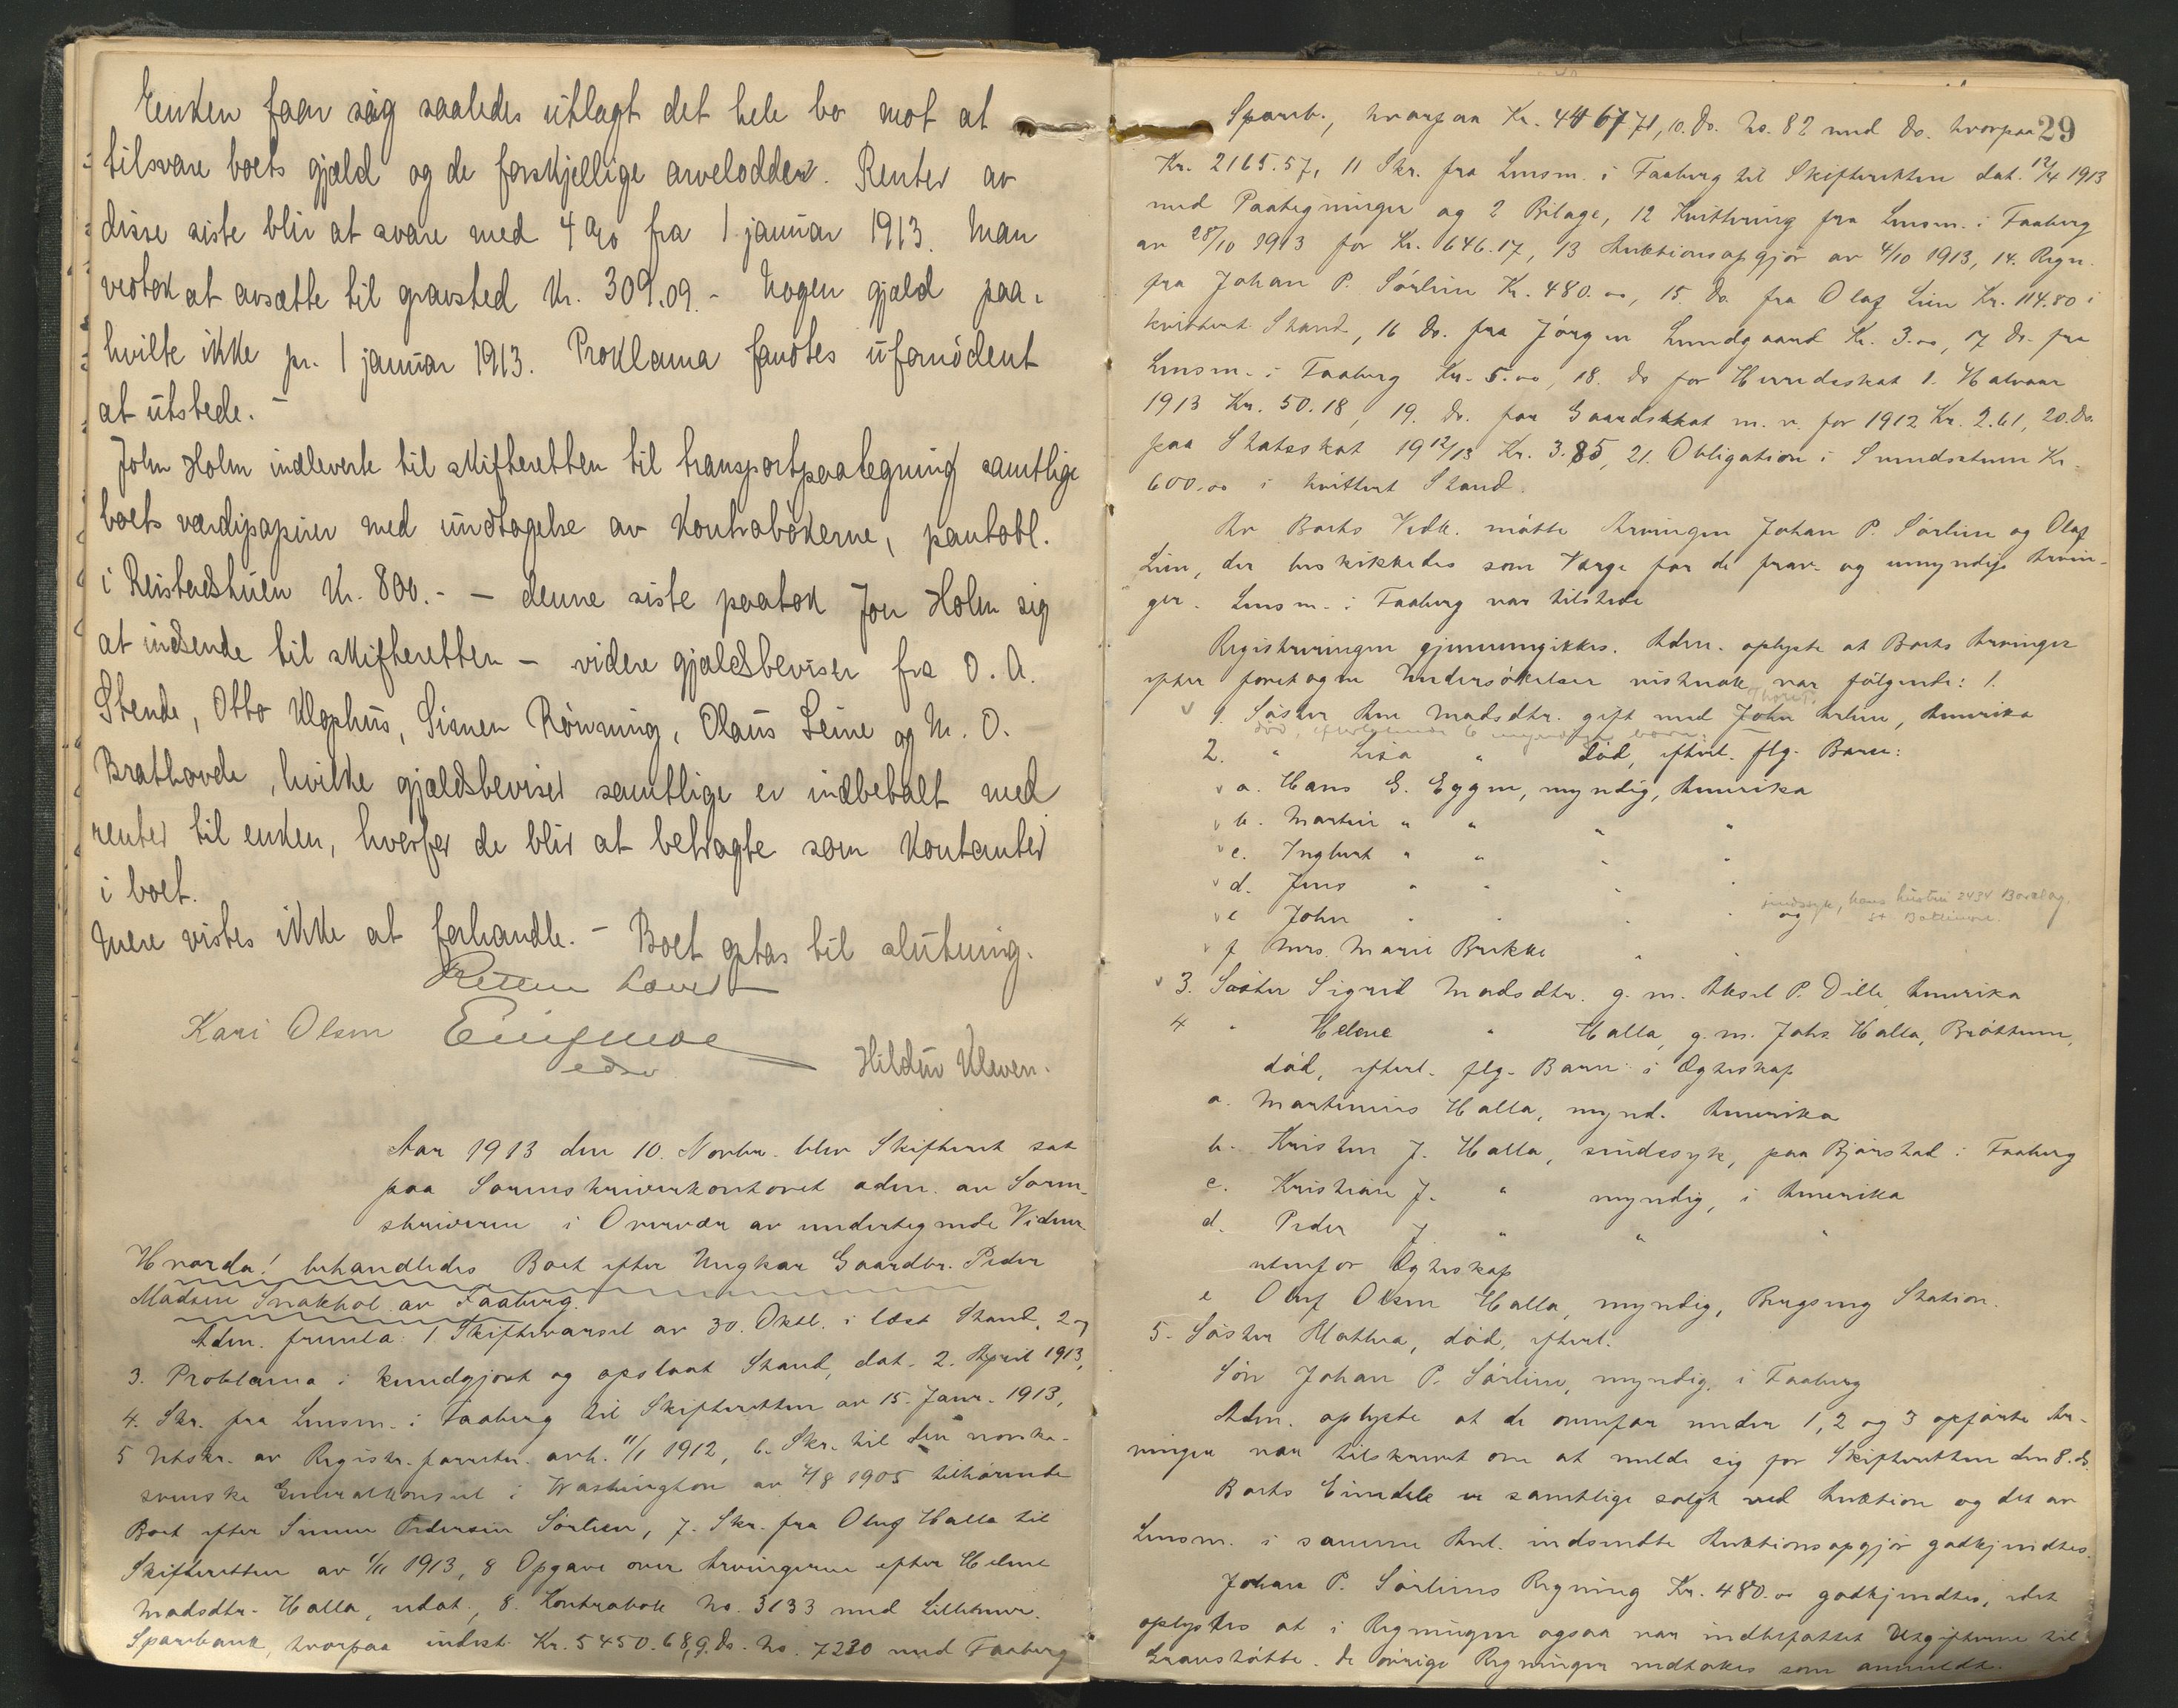 Enken faar sig saaledes utlagt det hele bo mot at
tilsvare boets gjæld og de forskjellige arvelodder. Renter av
disse siste blir at svare med 4 % fra 1 januar 1913. Man
vedtok at avsætte til gravsted Kr. 309.09. - Nogen gjæld paa-
hvilte ikke pr. 1 januar 1913. Proklama fandtes ufornödent
at utstede. -
John Holm indleverte til skifteretten til transportpaategning samtlige
boets værdipapirer med undtagelse av Kontrabökerne, pantobl.
i Reistadstuen Kr. 800.- - denne siste paatok Jon Holm sig
at indsende til skifteretten - videre gjældsbeviser fra O. A.
Stende, Otto Klophus, Simen Rövning, Olaus Leine og M. O.
Brathovde, hvilke gjældsbeviser samtlige er indbetalt med
renter til enken, hvorfor de blir at betragte som Kontanter
i boet.
Mere vistes ikke at forhandle. - Boet optas til slutning.
Retten hævet
Kari Olsen
edsv.
Hildur Kleven.
Aar 1913 den 10. Novbr. blev Skifteret sat
paa Sorenskriverkontoret adm. av Soren-
skriveren i Overvær av undertegnede Vidner.
Hvorda! behandledes Boet efter Ungkar Gaardbr. Peder
Madsen Snakhol av Faaberg.
Adm. fremla: 1 Skiftevarsel av 30. Oktb. i læst Stand, 2 og
3. Proklama i kundgjort og opslaat Stand, dat. 2. April 1913,
4. Skr. fra Lensm. i Faaberg til Skifteretten av 15. Janr. 1913,
5 Utskr. av Registr.forretn. avh. 11/1 1912, 6. Skr. til den norske-
svenske Generalkonsul i Washington av 4/8 1905 tilhörende
Boet efter Simen Pedersen Sörlien, 7. Skr. fra Oluf Halla til
Skifteretten av 1/11 1913, 8 Opgave over Arvingerne efter Helene
Madsdtr. Halla, udat., 8. Kontrabok No. 3133 med Lillehamr.
Sparebank, hvorpaa indest. Kr. 5450.68, 9. Do. No. 7220 med Faaberg
29
Spareb., hvorpaa Kr. 4467.71, 10. Do. No. 82 med Do. hvorpaa
Kr. 2165.57, 11 Skr. fra Lensm. i Faaberg til Skifteretten dat. 12/4 1913
med Paategninger og 2 Bilage, 12 Kvittering fra Lensm. i Faaberg
av 28/10 1913 for Kr. 646.17, 13 Auktionsopgjör av 4/10 1913, 14. Regn.
fra Johan P. Sörlien Kr. 480.00, 15. Do. fra Olaf Lien Kr. 114.80 i
kvittert Stand, 16 Do. fra Jörgen Lundgaard Kr. 3.00, 17 Do. fra
Lensm. i Faaberg Kr. 5.00, 18. Do for Herredsskat 1. Halvaar
1913 Kr. 50.18, 19. Do. for Gaardskat m. v. for 1912 Kr. 2.61, 20. Do.
paa Statsskat 1912/13 Kr. 3.85, 21. Obligation i Kr.
600.00 i kvittert Stand.
Av Boets Vedk. mötte Arvingen Johan P. Sörlien og Olaf
Lien, der beskikkedes som Værge for de frav. og umyndige Arvin-
ger. Lensm. i Faaberg var tilstede
Registreringen gjennemgikkes. Adm. oplyste at Boets Arvinger
efter foretagne Undersökelser vistnok var fölgende: 1.
1. Söster Ane Madsdtr. gift med John Arlien, Amerika
död, efterlatende 6 myndige börn:
2. " Lisa " död, efterl. flg. Barn:
a. Hans G. Eggen, myndig, Amerika
b. Martin " " " "
c. Ingbert " " " "
d. Jens " " " "
sindssyk, hans hustru 2434
og St. Baltimore.
e John " " " "
f Mrs. Marie Brekke " "
3. Söster Sigrid Madsdtr. g. m. Aksel P. Dille, Amerika
4 " Helene " Halla, g. m. Johs. Halla, Bröttum,
död, efterl. flg. Barn i Egteskap
a. Martinius Halla, mynd. Amerika
b. Kristen J. Halla, sindssyk, paa Bjørstad i Faaberg
c. Kristian J. " myndig, i Amerika
d. Peder J. " " "
utenfor Egteskap
e Oluf Olsen Halla, myndig, Bergseng Station.
5. Söster Mathea, död, efterl.
Sön Johan P. Sörlien, myndig, i Faaberg
Adm. oplyste at de ovenfor under 1, 2 og 3 opförte Ar-
vinger var tilskrevet om at melde sig for Skifteretten den 8. ds.
Boets Eiendele er samtlige solgt ved Auktion og det av
Lensm. i samme Anl. indsendte Auktionsopgjör godkjendtes.
Johan P. Sörliens Regning Kr. 480.00 godkjendtes, idet
oplystes at i Regningen ogsaa var indbefattet Utgifterne til
Gravstötte. De övrige Regninger vedtokes som anmeldt.